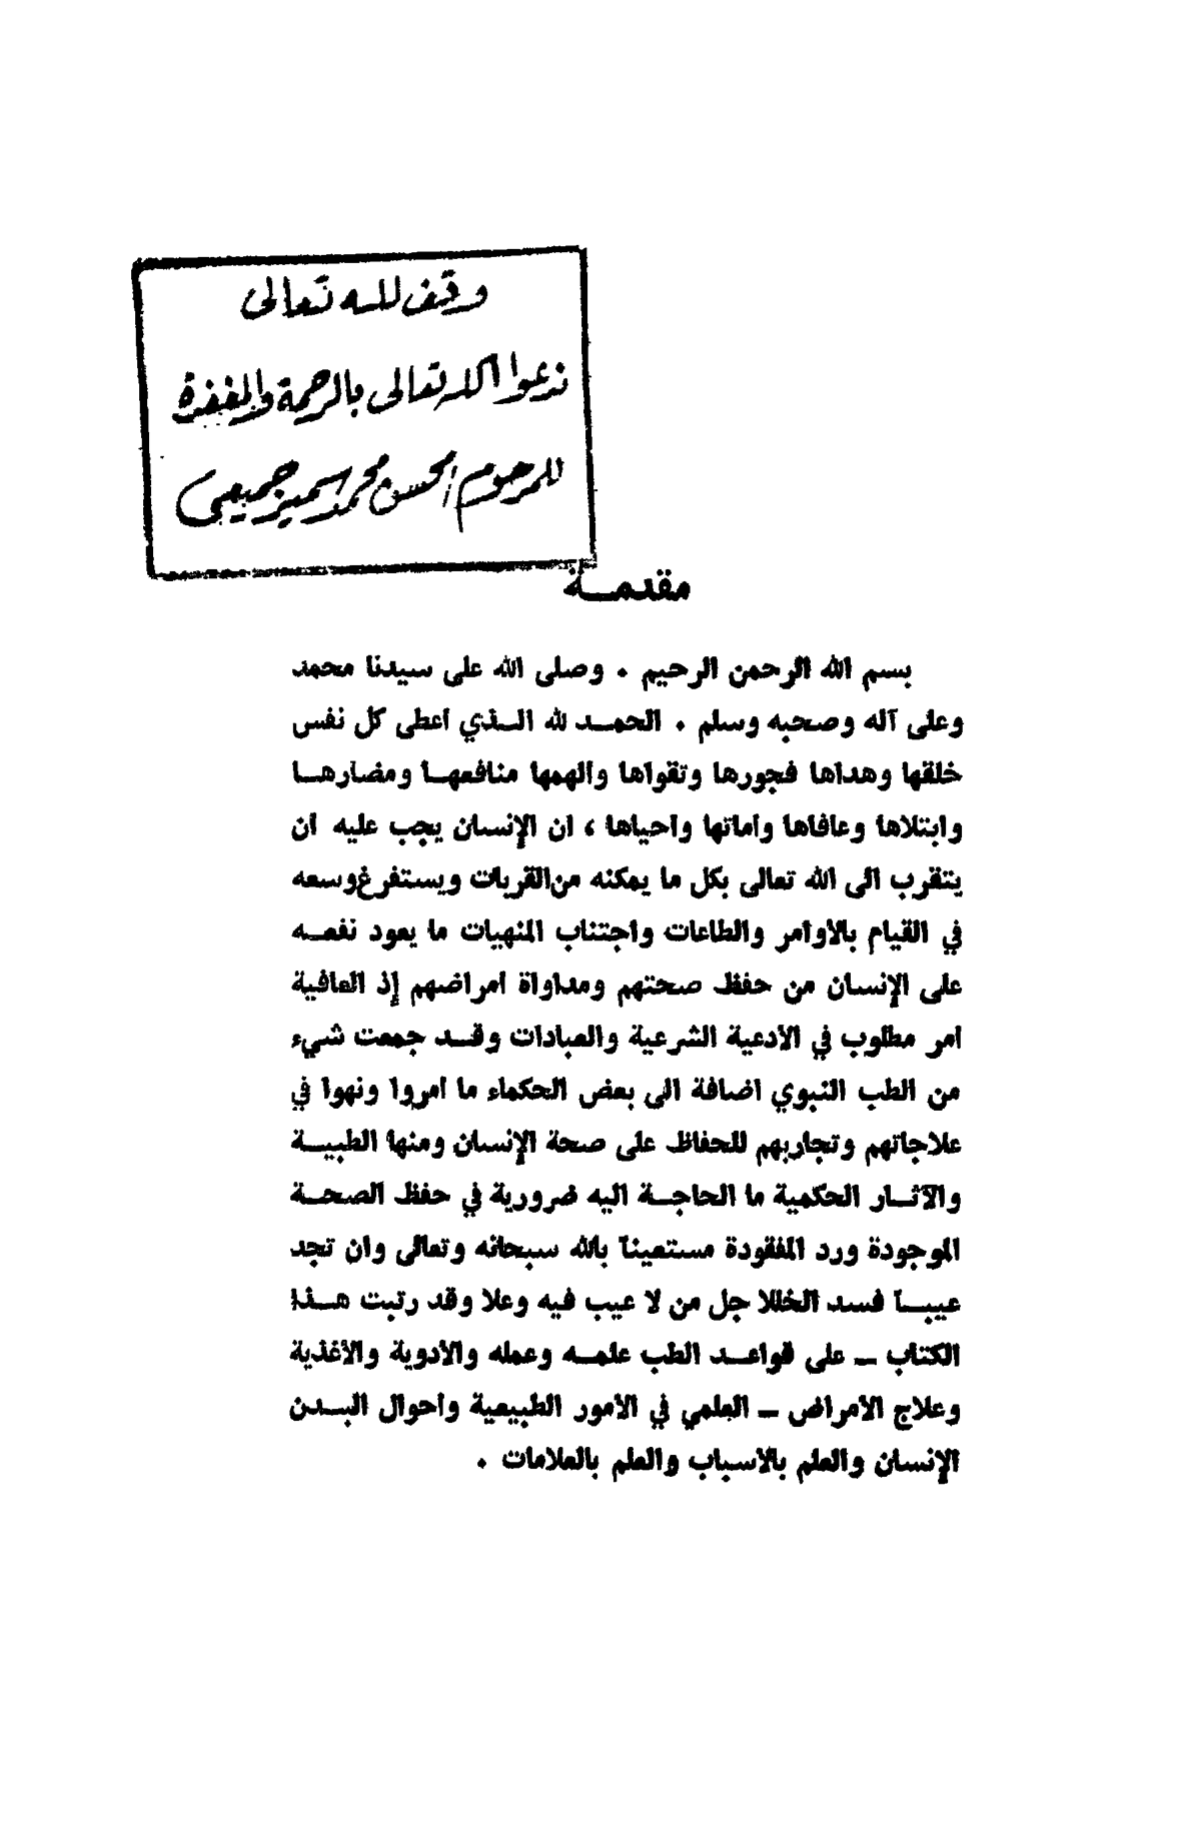 وقف لله تعالى
ندعوا الله تعالى بالرحمة والمغفرة
للمرحوم المحسن محمد سمير جميعي
مقدمــة
بسم الله الرحمن الرحيم . وصلى الله على سيدنا محمد
وعلى آله وصحبه وسلم . الحمــد لله الــذي اعطى كل نفس
خلقها وهداها فجورها وتقواها والهمها منافعهــا ومضارهــا
وابتلاها وعافاها واماتها واحياها ، ان الإنسان يجب عليه ان
يتقرب الى الله تعالى بكل ما يمكنه من القربات ويستفرغ وسعه
في القيام بالاوامر والطاعات واجتناب المنهيات ما يعود نفعــه
على الإنسان من حفظ صحتهم ومداواة امراضهم إذ العافية
امر مطلوب في الادعية الشرعية والعبادات وقــد جمعت شيء
من الطب النبوي اضافة الى بعض الحكماء ما امروا ونهوا في
علاجاتهم وتجاربهم للحفاظ على صحة الإنسان ومنها الطبيــة
والآثــار الحكمية ما الحاجــة اليه ضرورية في حفظ الصحــة
الموجودة ورد المفقودة مستعيناً بالله سبحانه وتعالى وان تجد
عيبــاً فسد الخللا جل من لا عيب فيه وعلا وقد رتبت هــذا
الكتاب ــ على قواعــد الطب علمــه وعمله والادوية والاغذية
وعلاج الامراض ــ العلمي في الامور الطبيعية واحوال البــدن
الإنسان والعلم بالاسباب والعلم بالعلامات .